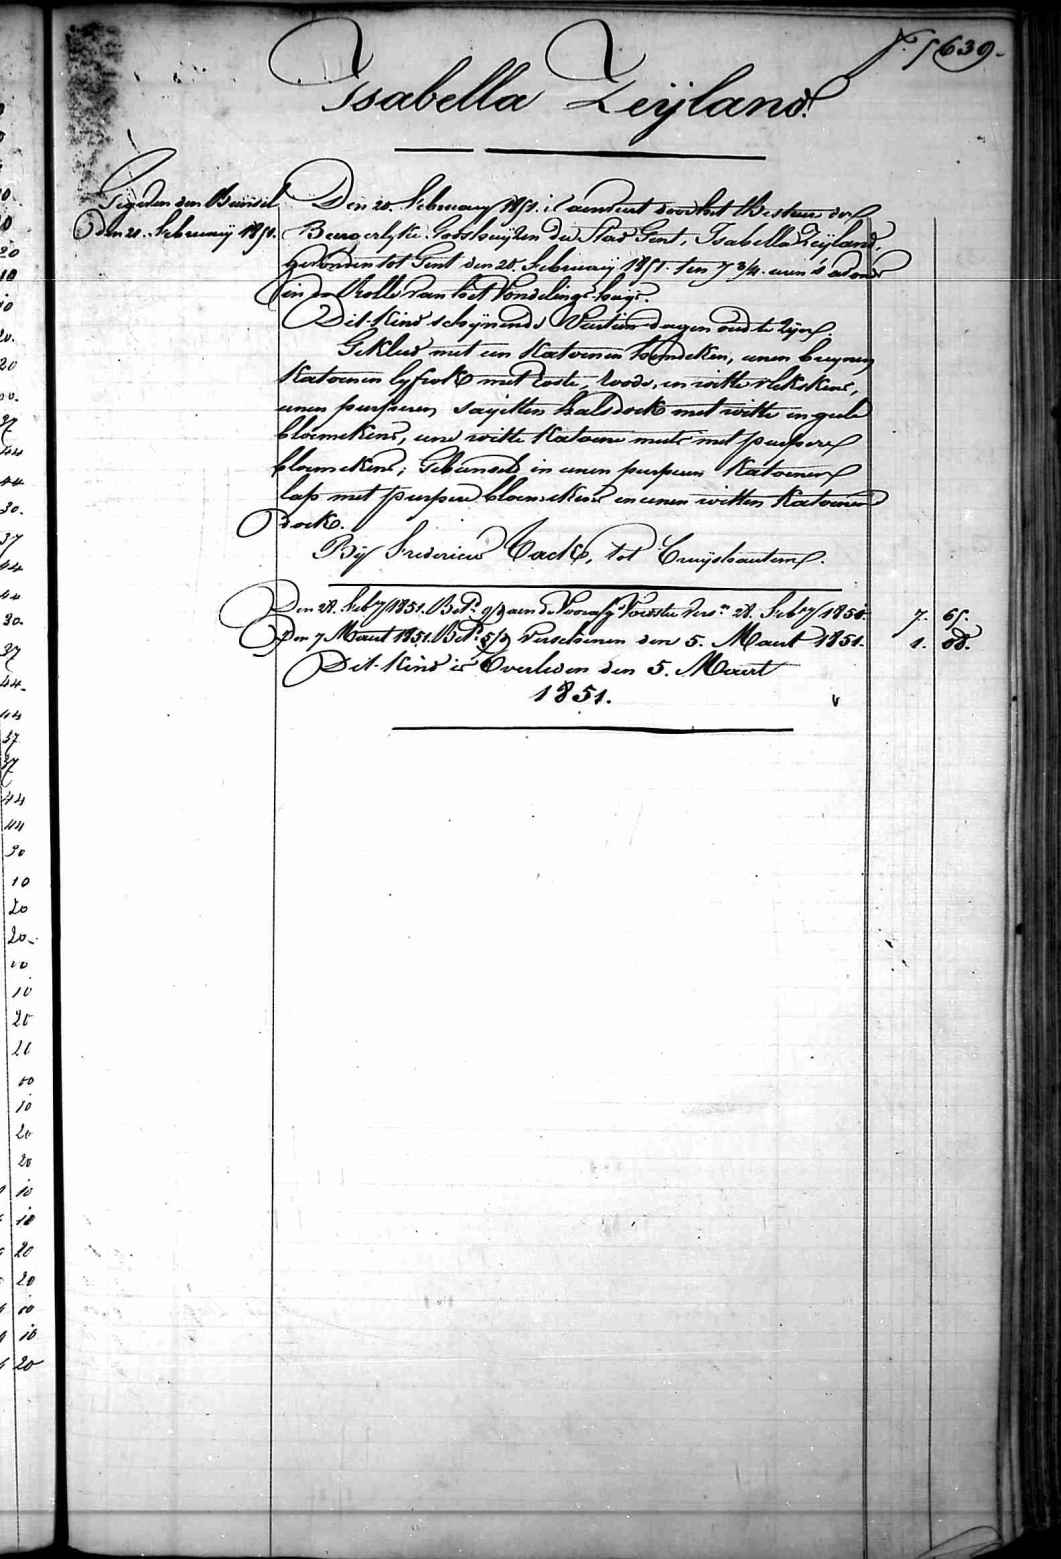 F.° 5639.
Isabella Zeijland.
Gegeven een Bewijs
den 21. Februarij 1851.
Den 20. February 1851. is aenveert door het Bestuer der
Burgerlyke Godshuijzen der Stad Gent, Isabella Zeijland,
gevonden tot Gent den 20. Februarij 1851. ten 7 3/4. uren 's avonds
in de Rolle van het Vondelings-huijs.
Dit Kind schijnende Veertien dagen oud te zijn.
Gekleed met een Katoenen hemdeken, eenen bruynen
Katoenen lyfrok met roste, roode, en witte vlekskens,
eenen purperen sayetten halsdoek met witte en geele
bloemekens, eene witte Katoene muts met purpere
bloemekens; Gebunseld in eenen purperen Katoenen
lap met purpere bloemekens en eenen witten Katoenen
doek.
Bij Fredericus Tack, tot Cruijshautem.
Den 28. Feb.ry 1851. Bet.d 9/d aen de Voorsz. Voedster vers.n 28. Feb.ry 1851. 7. 65.
Den 7 Maert 1851. Bet.d 5/d verschenen den 5. Maert 1851. 1. 00.
Dit Kind is Overleden den 5. Maert
1851.
37
44
44
30
10
20
20
00
10
20
20
00
10
20
20
10
10
20
20
00
10
20